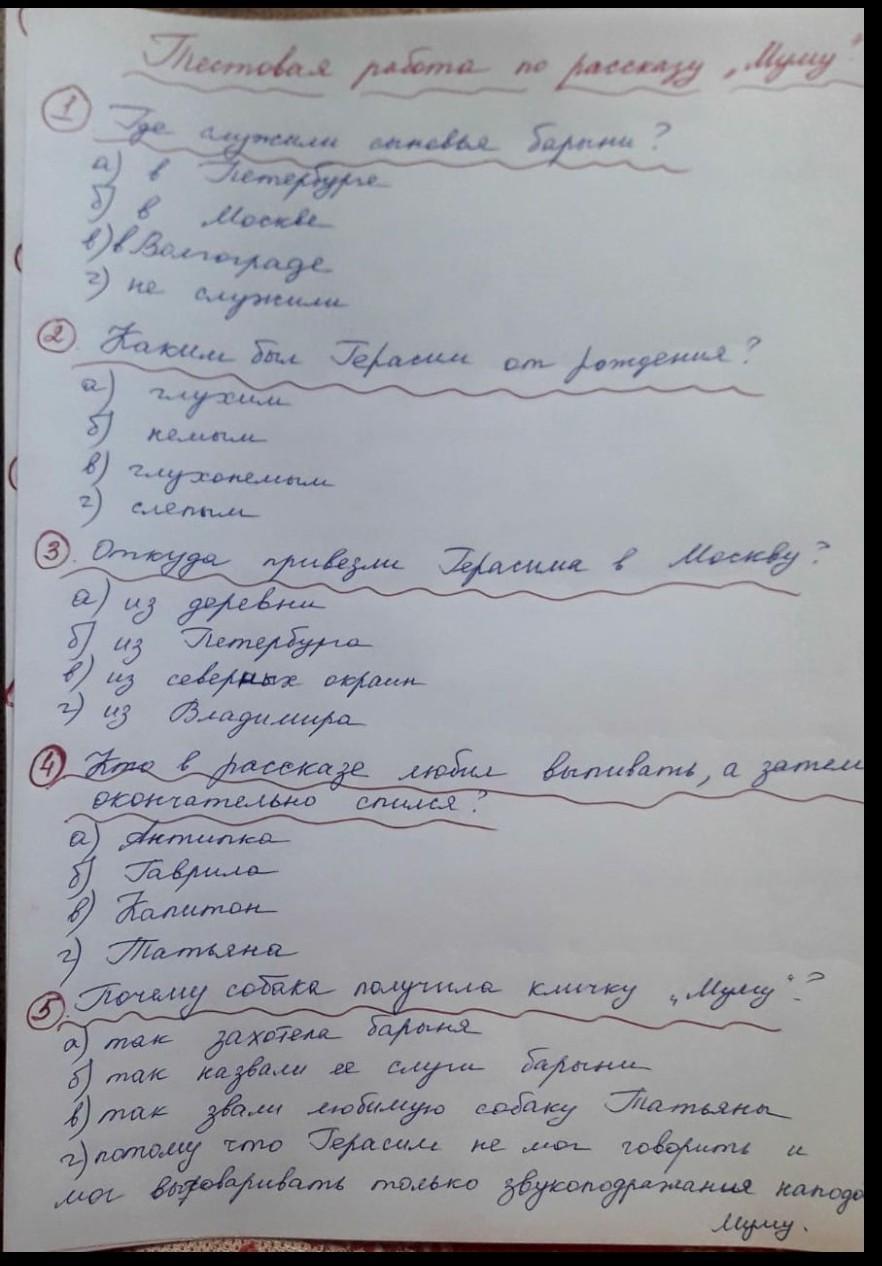 Тестовая работа по рассказу „Муму"
1 Где служили сыновья барыни?
а) в Петербурге
б) в Москве
в) в Волгограде
г) не служили
2. Каким был Герасим от рождения?
а) глухим
б) немым
в) глухонемым
г) слепым
3. Откуда привезли Герасима в Москву?
а) из деревни
б) из Петербурга
в) из северных окраин
г) из Владимира
4. Кто в рассказе любил выпивать, а затем
окончательно спился?
а) Антипка
б) Гаврила
в) Капитон
г) Татьяна
5. Почему собака получила кличку „Муму"?
а) так захотела барыня
б) так назвали ее слуги барыни
в) так звали любимую собаку Татьяны
г) потому что Герасим не мог говорить и
мог выговаривать только звукоподражания наподо
Муму.